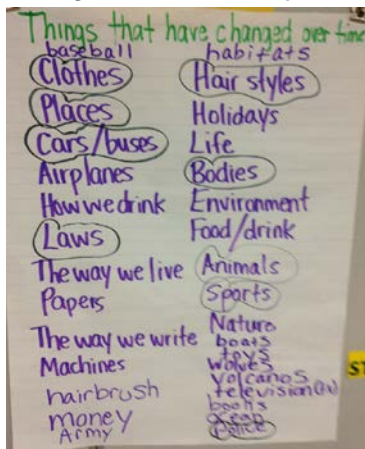 Things that have changed over time
baseball
Clothes
Places
Cars/buses
Airplanes
How we drink
Laws
The way we live
Papers
The way we write
Machines
hairbrush
money
Army
habitats
Hair styles
Holidays
Life
Bodies
Environment
Food/drink
Animals
Sports
Nature
boats
toys
wolves
volcanos
television (tv)
books
Ocean
Police
ST